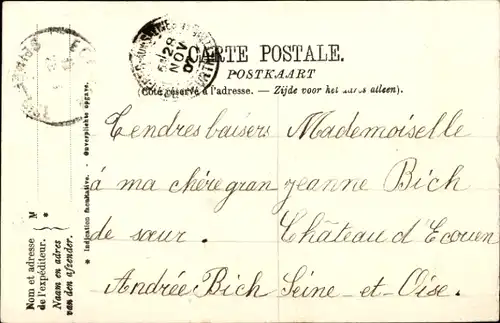 CARTE POSTALE.
POSTKAART
(Côté réservé à l'adresse. — Zijde voor het adres alleen.)
28
NOV
Tendres baisers Mademoiselle
à ma chère gran Jeanne Bich
de sœur. Château d'Ecouen
Andrée Bich Seine-et-Oise.
Nom et adresse
de l'expéditeur.
Naam en adres
van den afzender.
M
*
* Indication facultative. - Onverplichte opgave.